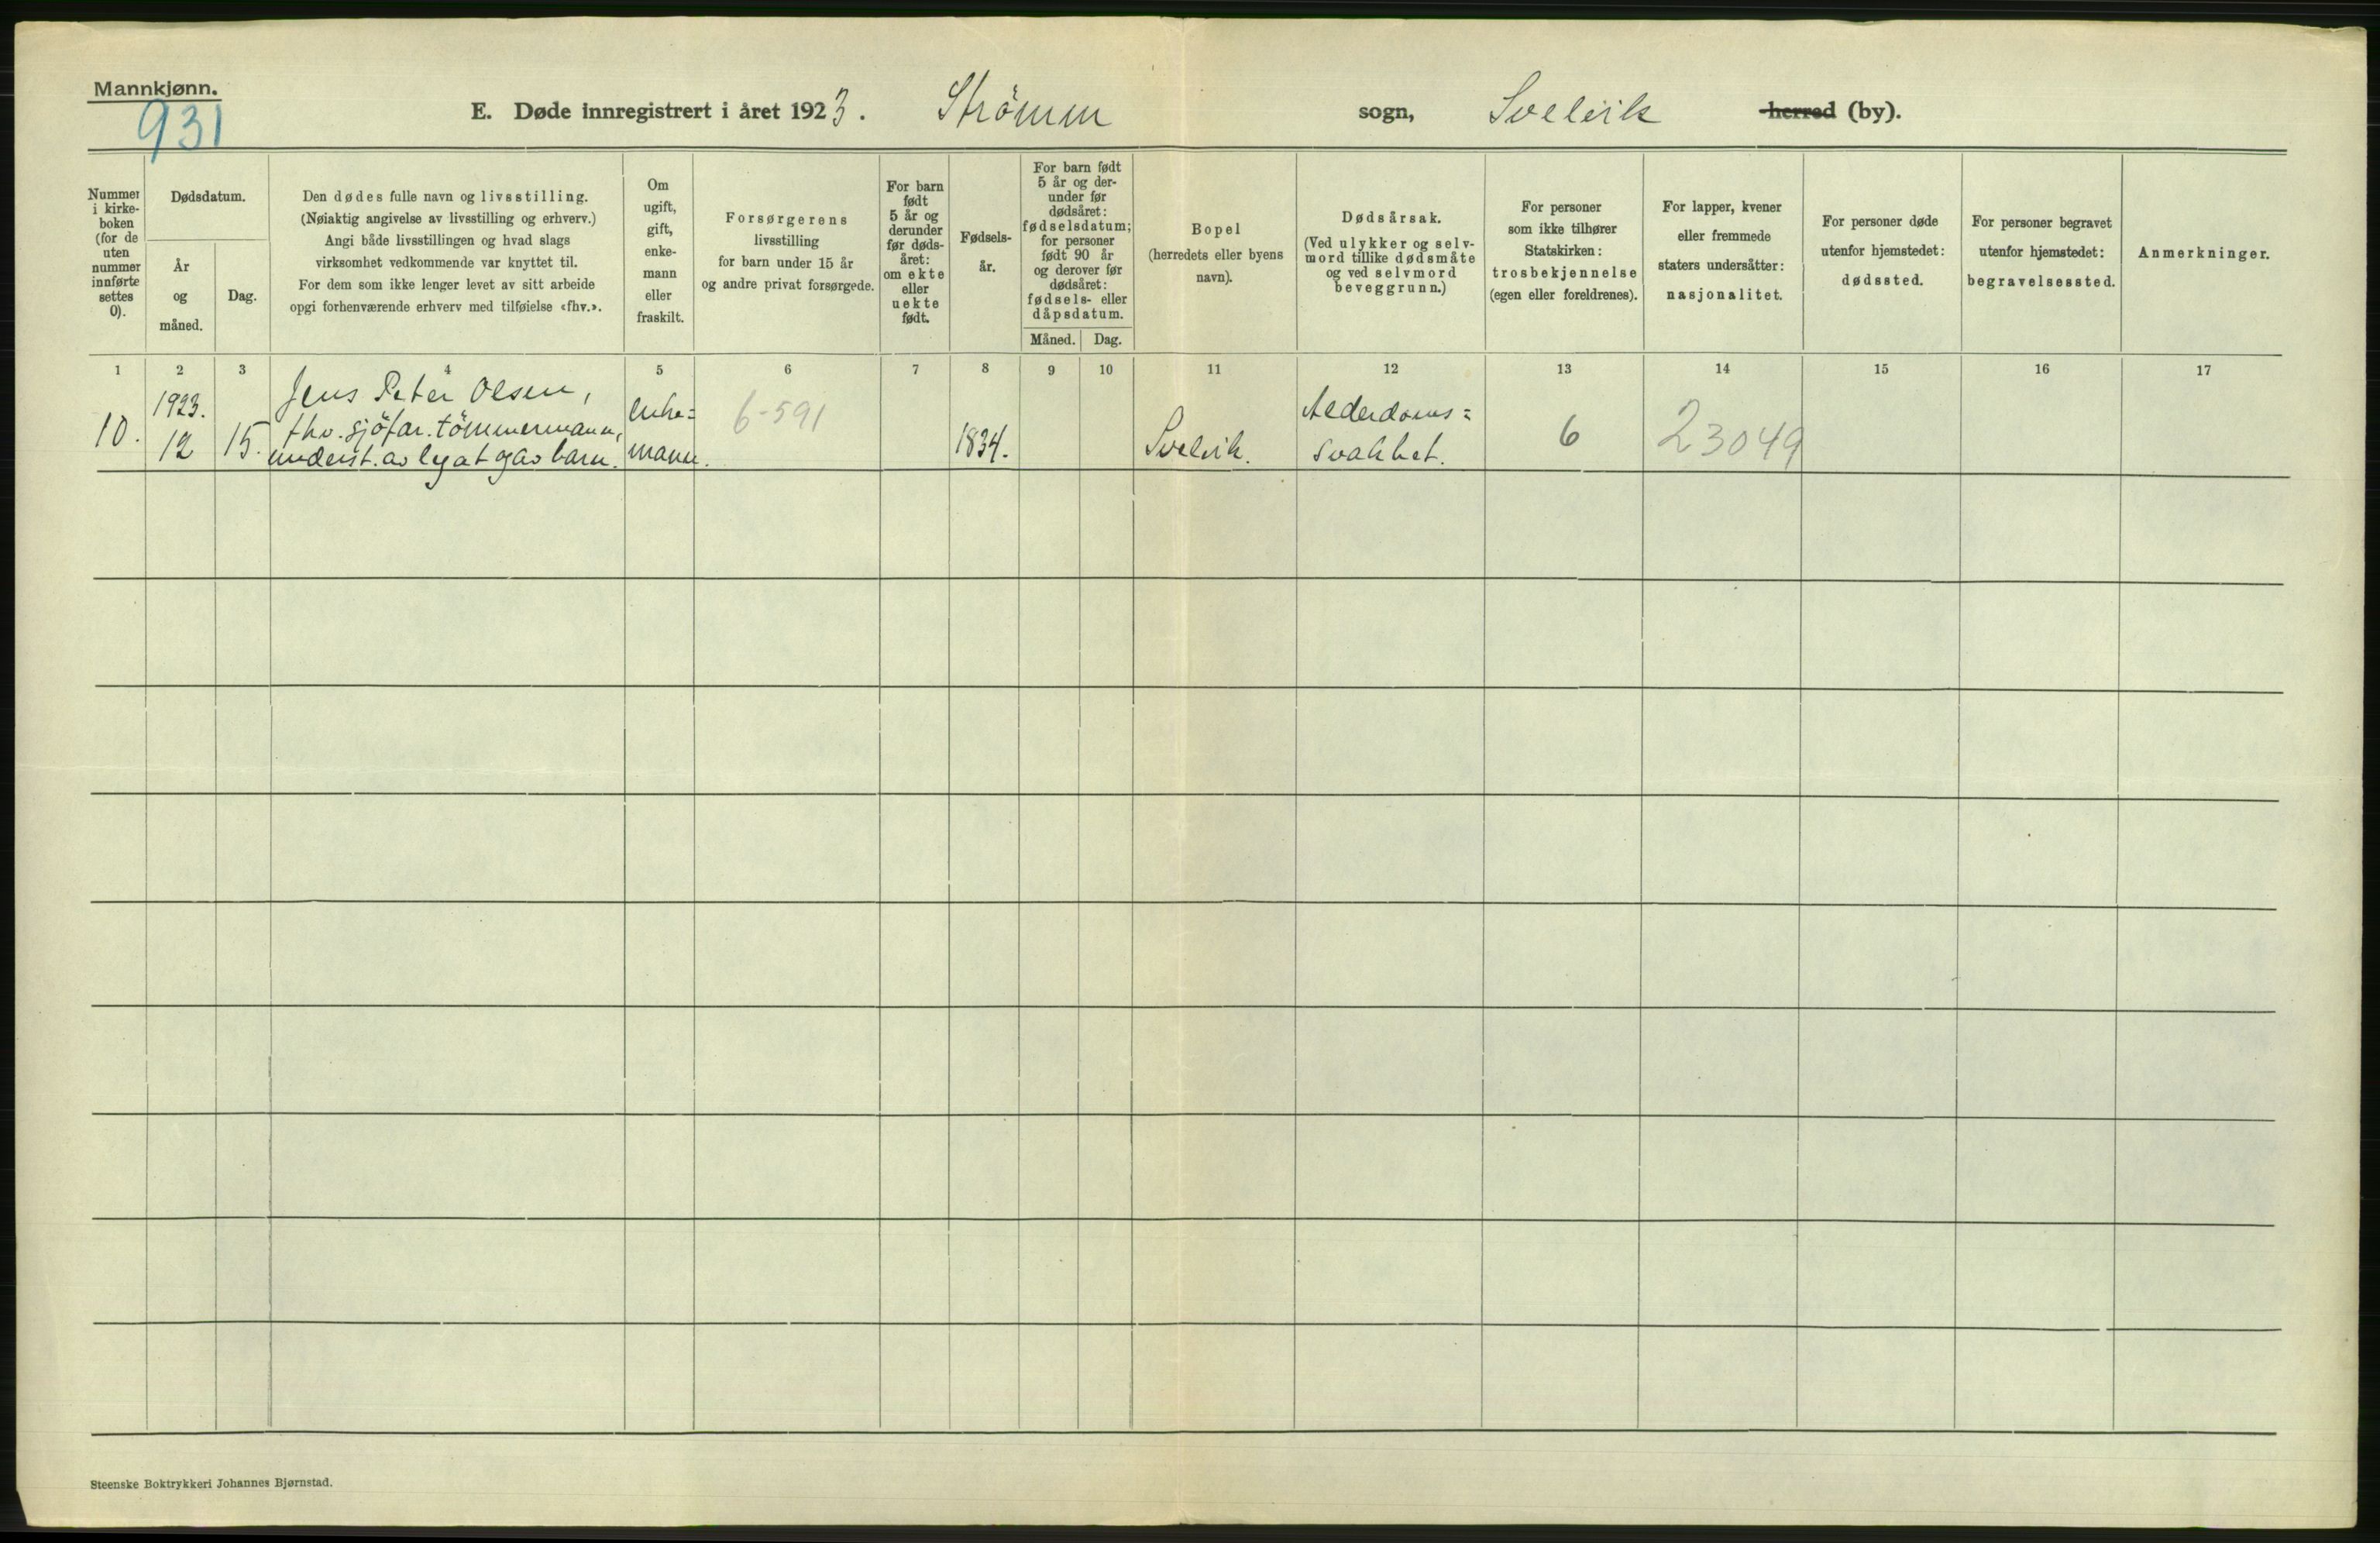 Mannkjønn.
931
E. Døde innregistrert i året 1923. Strömm sogn, Svelvik herred (by).
Nummer
i kirke-
boken
(for de
uten
nummer
innførte
settes
0).
Dødsdatum.
År
og
måned.
Dag.
Den dødes fulle navn og livsstilling.
(Nøiaktig angivelse av livsstilling og erhverv.)
Angi både livsstillingen og hvad slags
virksomhet vedkommende var knyttet til.
For dem som ikke lenger levet av sitt arbeide
opgi forhenværende erhverv med tilføielse «fhv.».
Om
ugift,
gift,
enke-
mann
eller
fraskilt.
Forsørgerens
livsstilling
for barn under 15 år
og andre privat forsørgede.
For barn
født
5 år og
derunder
før døds-
året:
om ekte
eller
uekte
født.
Fødsels-
år.
For barn født
5 år og der-
under før
dødsåret:
fødselsdatum;
for personer
født 90 år
og derover før
dødsåret:
fødsels- eller
dåpsdatum.
Måned. Dag.
Bopel
(herredets eller byens
navn).
Dødsårsak.
(Ved ulykker og selv-
mord tillike dødsmåte
og ved selvmord
beveggrunn.)
For personer
som ikke tilhører
Statskirken:
trosbekjennelse
(egen eller foreldrenes).
For lapper, kvener
eller fremmede
staters undersåtter:
nasjonalitet.
For personer døde
utenfor hjemstedet:
dødssted.
For personer begravet
utenfor hjemstedet:
begravelsessted.
Anmerkninger.
1 2 3 4 5 6 7 8 9 10 11 12 13 14 15 16 17
10.
1923.
12
15.
Jens Peter Olsen,
fhv. sjöfar. tömmermann,
underst. av legat og av barn.
enke=
mann.
6-591
1834.
Svelvik.
Alderdoms=
svakhet.
6
23049
Steenske Boktrykkeri Johannes Bjørnstad.